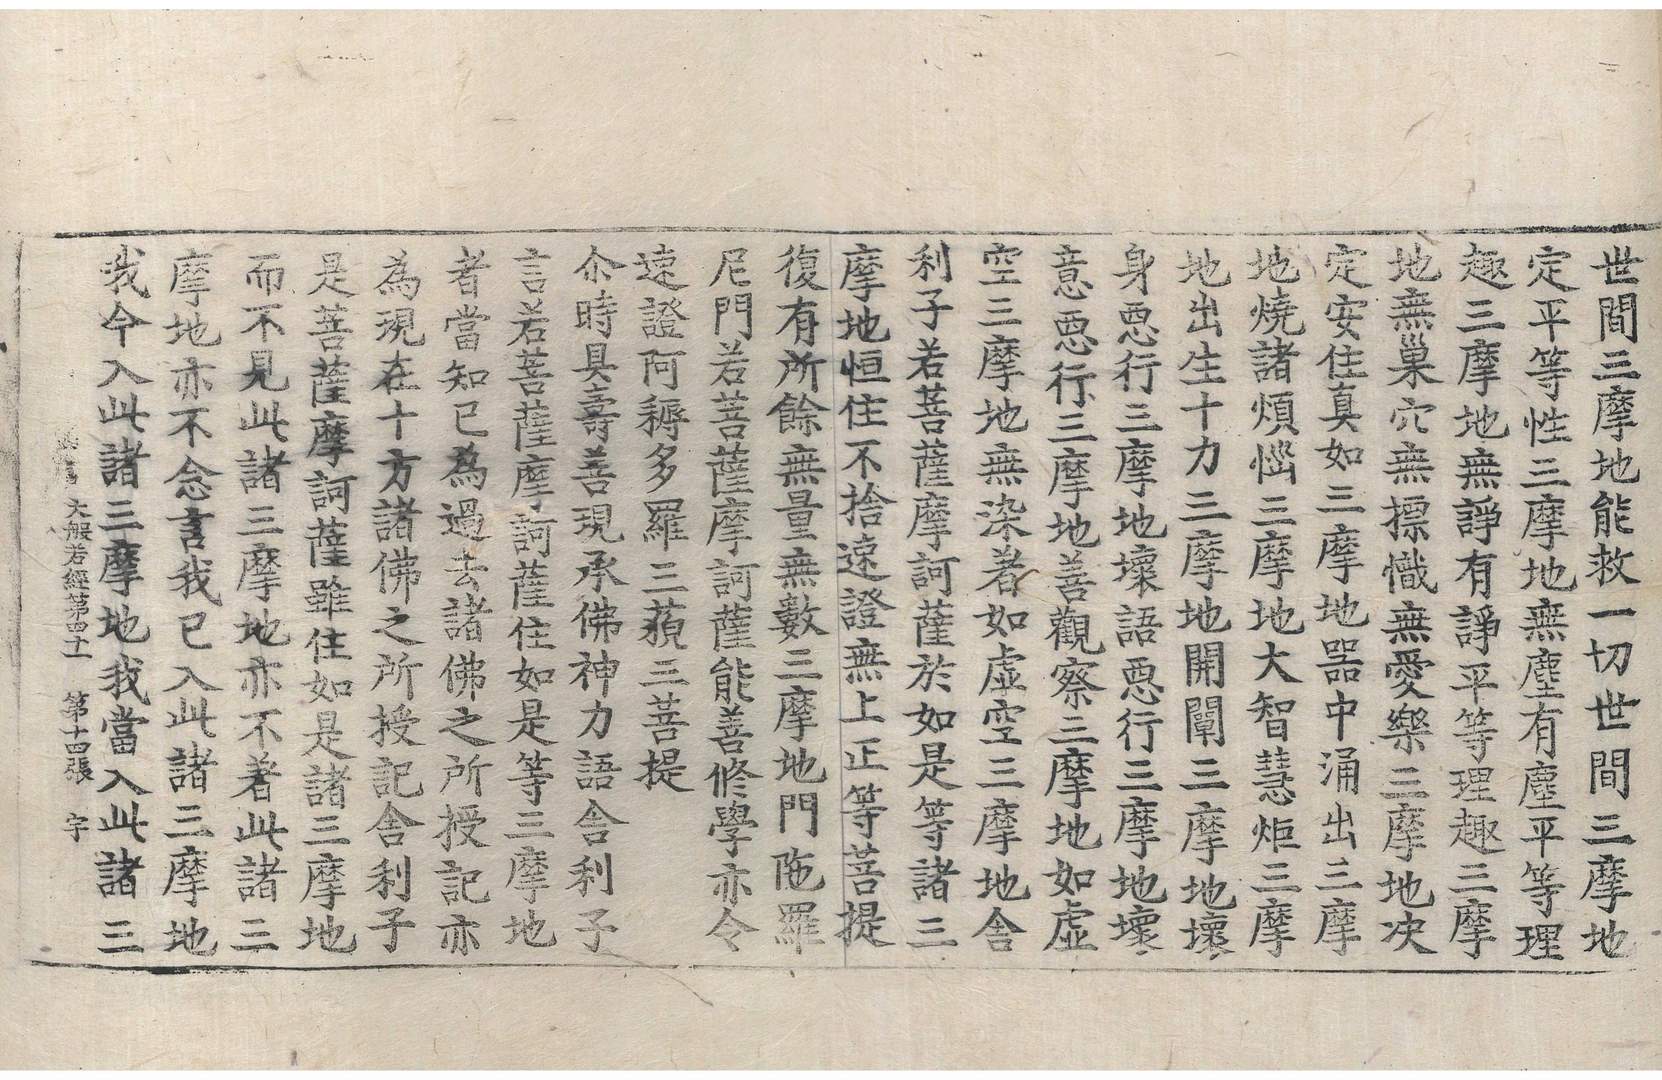 世間三摩地能救一切世間三摩地
定平等性三摩地無塵有塵平等理
趣三摩地無諍有諍平等理趣三摩
地無巢穴無摽幟無愛樂三摩地决
定安住真如三摩地器中涌出三摩
地燒諸煩惱三摩地大智慧炬三摩
地出生十力三摩地開闡三摩地壞
身惡行三摩地壞語惡行三摩地壞
意惡行三摩地善觀察三摩地如虛
空三摩地無染著如虛空三摩地舍
利子若菩薩摩訶薩於如是等諸三
摩地恒住不捨速證無上正等菩提
復有所餘無量無數三摩地門陁羅
尼門若菩薩摩訶薩能善修學亦令
速證阿耨多羅三藐三菩提
尒時具壽善現承佛神力語舍利子
言若菩薩摩訶薩住如是等三摩地
者當知已為過去諸佛之所授記亦
為現在十方諸佛之所授記舍利子
是菩薩摩訶薩雖住如是諸三摩地
而不見此諸三摩地亦不著此諸三
摩地亦不念言我已入此諸三摩地
我今入此諸三摩地我當入此諸三
大般若經第四十一 第十四張 宇